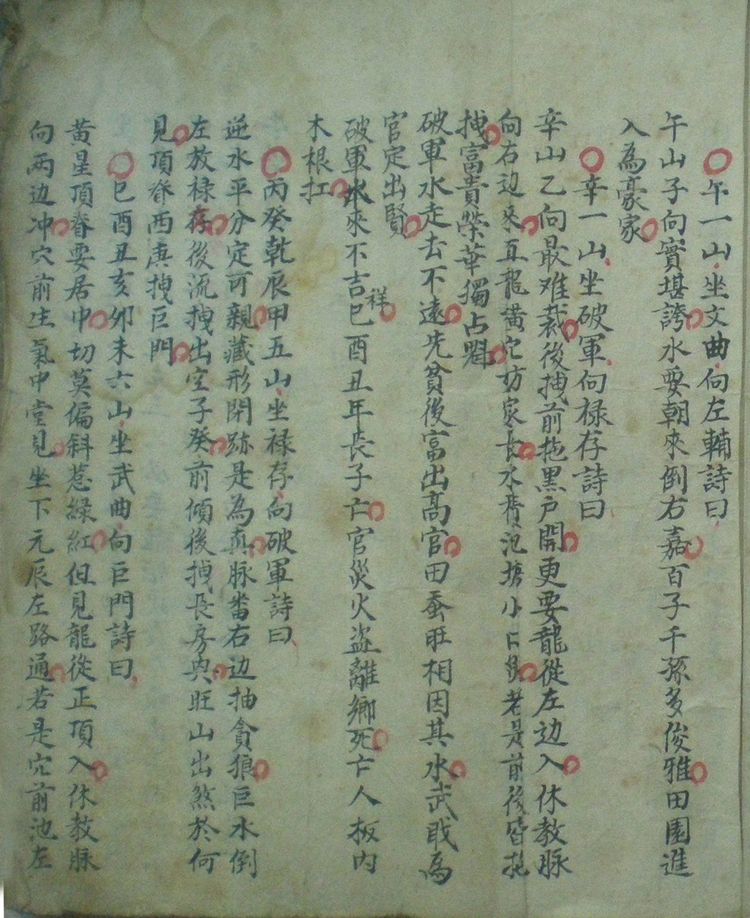 午一山坐文曲向左輔詩曰
午山子向實堪誇水要朝來倒右嘉百子千孫多俊雅田園進
入為豪家
辛一山坐破軍向禄存詩曰
辛山乙向最难裁後拽前拖黑户開更要龍從左边入休教脉
向右边來直龍黄穴妨家長水 池塘小口 老是前後皆拖
拽富貴榮華獨占魁
破軍水走去不遠先貧後富出高官田蚕旺相因其水武戝為
官定出賢
破軍水來不吉祥巳酉丑年長子亡官災火盗離鄉死亡人板内
木根扛
丙癸乾辰甲五山坐禄存向破軍詩曰
逆水平分定可親藏形閉跡是為真脉畨右边抽貪狼巨水倒
左放禄存後流拽出空子癸前傾後拽長房興旺山出煞於何
見頂脊西庚拽巨門
巳酉丑亥卯未六山坐武曲向巨門詩曰
黄星頂脊要居中切莫偏斜惹緑紅但見龍從正頂入休教脉
向两边冲穴前生氣中堂見坐下元辰左路通若是穴前池左